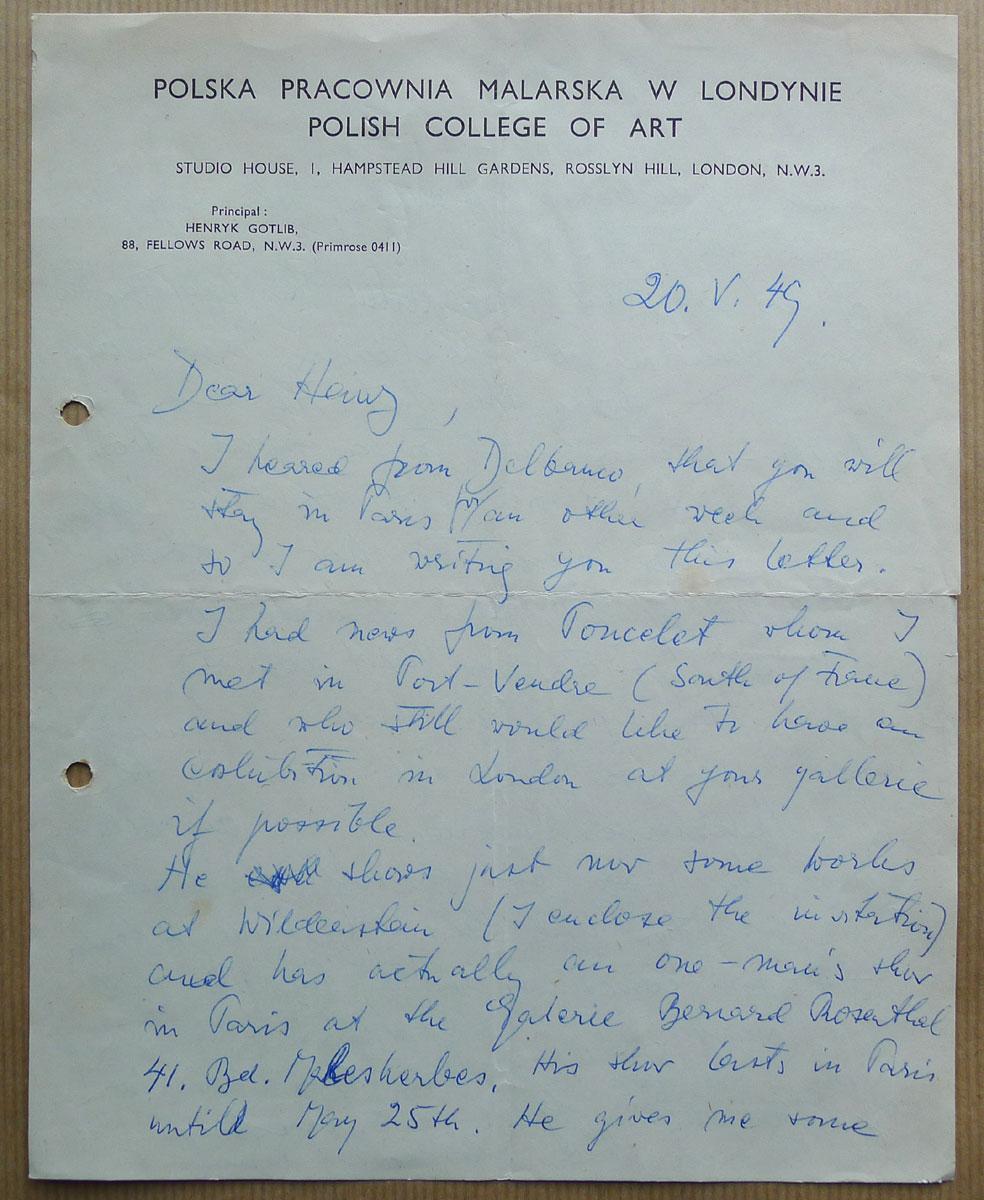 POLSKA PRACOWNIA MALARSKA W LONDYNIE
POLISH COLLEGE OF ART
STUDIO HOUSE, 1, HAMPSTEAD HILL GARDENS, ROSSLYN HILL, LONDON, N.W.3.
Principal :
HENRYK GOTLIB,
88, FELLOWS ROAD, N.W.3. (Primrose 0411)
20. V. 49.
Dear Heinz,
I heared from Delbanco, that you will
stay in Paris for an other week and
so I am writing you this letter.
I had news from Poncelet whom I
met in Port-Vendre (South of France)
and who still would like to have an
exhibition in London at your gallerie
if possible.
He shows just now some works
at Wildenstein (I enclose the invitation)
and has actually an one-man's show
in Paris at the Galerie Bernard Rosenthal
41. Bd. Malesherbes. His show lasts in Paris
untill May 25th. He gives me some